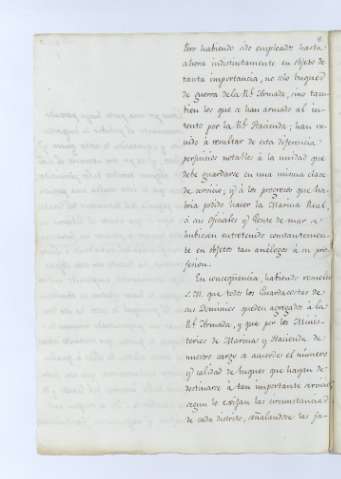 Pero habiendo sido empleados hasta
ahora indistintamente en objeto de
tanta importancia, no solo buques
de guerra de la Rl. Armada, sino tam-
bien los que se han armado al in-
tento por la Rl. Hacienda; han ve-
nido à resultar de esta diferencia
perjuicios notables à la unidad que
debe guardarse en una misma clase
de servicio, y à los progresos que ha-
bria podido hacer la Marina Real,
si sus Oficiales y Gente de mar se
hubieran entretenido constantemen-
te en objetos tan análogos à su pro-
fesion.
En conseqüencia, habiendo resuelto
S.M. que todos los Guardacostas de
sus Dominios queden agregados à la
Rl. Armada, y que por los Minis-
terios de Marina y Hacienda de
nuestro cargo se acuerde el número
y calidad de buques que hayan de
destinarse à tan importante servicio
segun lo exijan las circunstancias
de cada distrito, señalandose las fa-